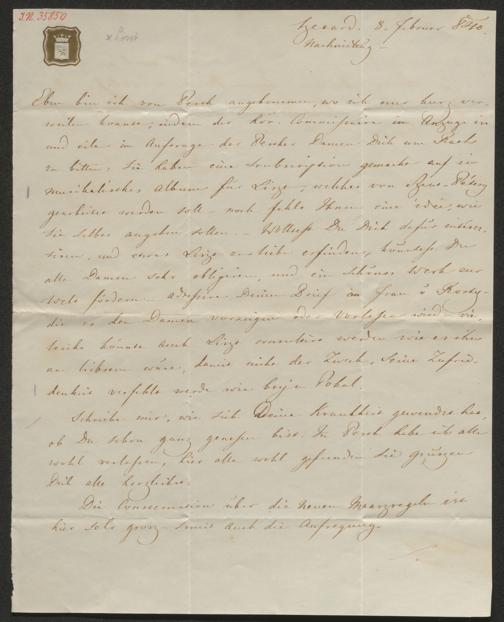 I.N. 35850
Szexard. 8. Februar 1840.
Nachmittag –
Eben bin ich von Pesth angekommen, wo ich nur kurz ver-
weilen konnte, indem der kön. Commissaire im Anzuge ist
und eile im Auftrage der Pesther Damen Dich um Rath
zu bitten. Sie haben eine Subscription gemacht auf ein
musikalisches Album für Liszt, welches von
werden soll – noch fehlt Ihnen eine Idee, wie
sie selbes angehen sollen. – Wolltest Du Dich dafür interes-
siren, und etwas Liszt zu liebe erfinden, könntest Du
alle Damen sehr obligiren, und ein schönes Werk zur
Welt fördern – adressire Deinen Brief an Frau v
die es den Damen vorzeigen oder vorlesen wird. Vie-
leicht könnte auch Liszt werden wie es ihm
am liebsten wäre, damit nicht der Zweck, seine Zufrie-
denheit verfehlt werde wie beym Pokal.
Schreibe mir, wie sich Deine Krankheit gewendet hat,
ob Du schon ganz genesen bist. In Pesth habe ich alle
wohl verlassen, hier alle wohl gefunden. Sie grüssen
Dich alle herzlichst.
Die Consternation über die neuen
hier sehr gross – somit auch die Aufregung.